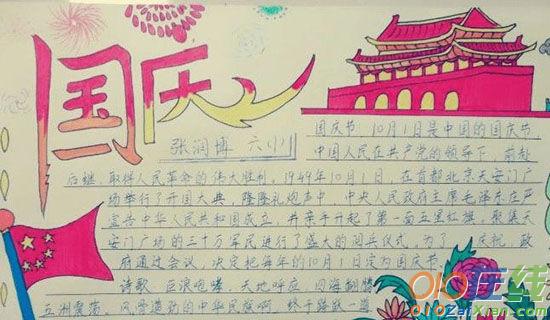 国庆
张润博 六(1)
国庆节,10月1日是中国的国庆节,
中国人民在共产党的领导下,前赴
后继,取得人民革命的伟大胜利,1949年10月1日,在首都北京天安门广
场举行了开国大典,隆隆礼炮声中,中央人民政府主席毛泽东庄严
宣告中华人民共和国成立,并亲手升起了第一面五星红旗,聚集天
安门广场的三十万军民进行了盛大的阅兵仪式,为了 庆祝,政
府通过会议,决定把每年的10月1日定为国庆节。
诗歌:巨浪咆哮,天地呼应,四海翻腾
五洲震荡,风雷激励的中华民族啊,终于踏
010在线
ZaiXian.com